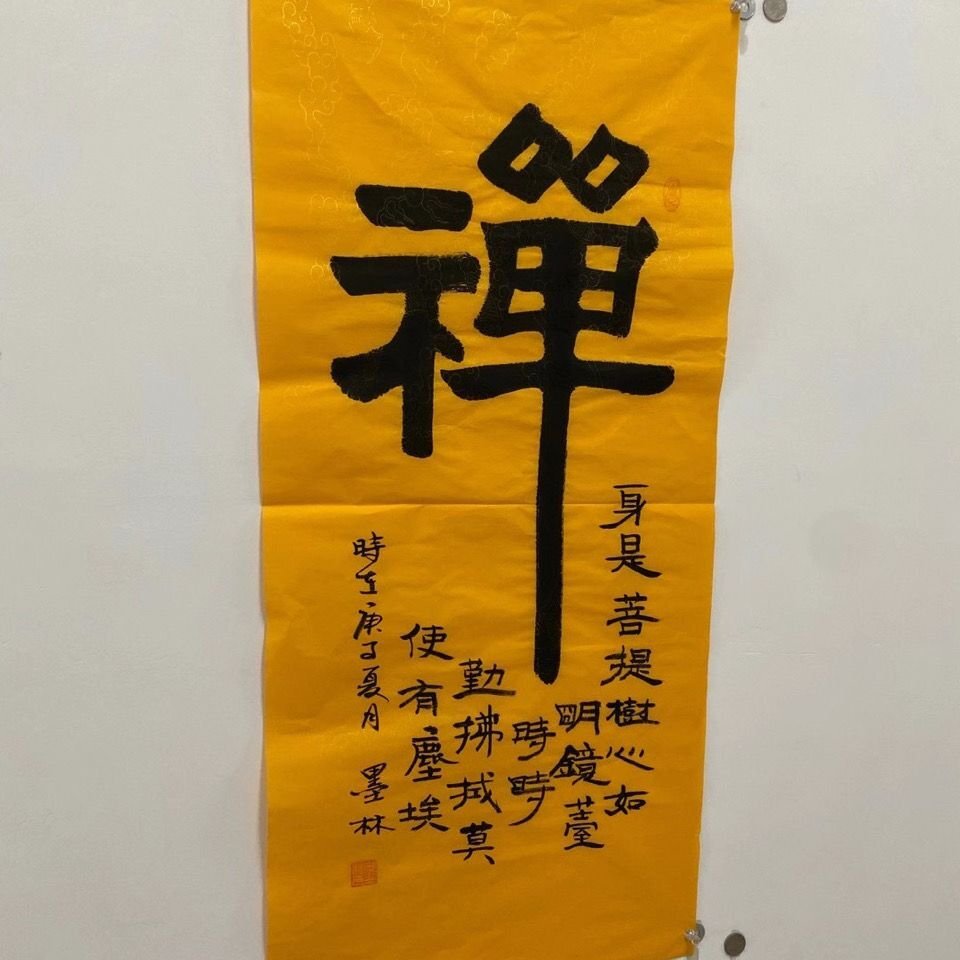 禪
身是菩提樹心如
明鏡臺
時時
勤拂拭莫
使有塵埃
時在庚子夏月
墨林